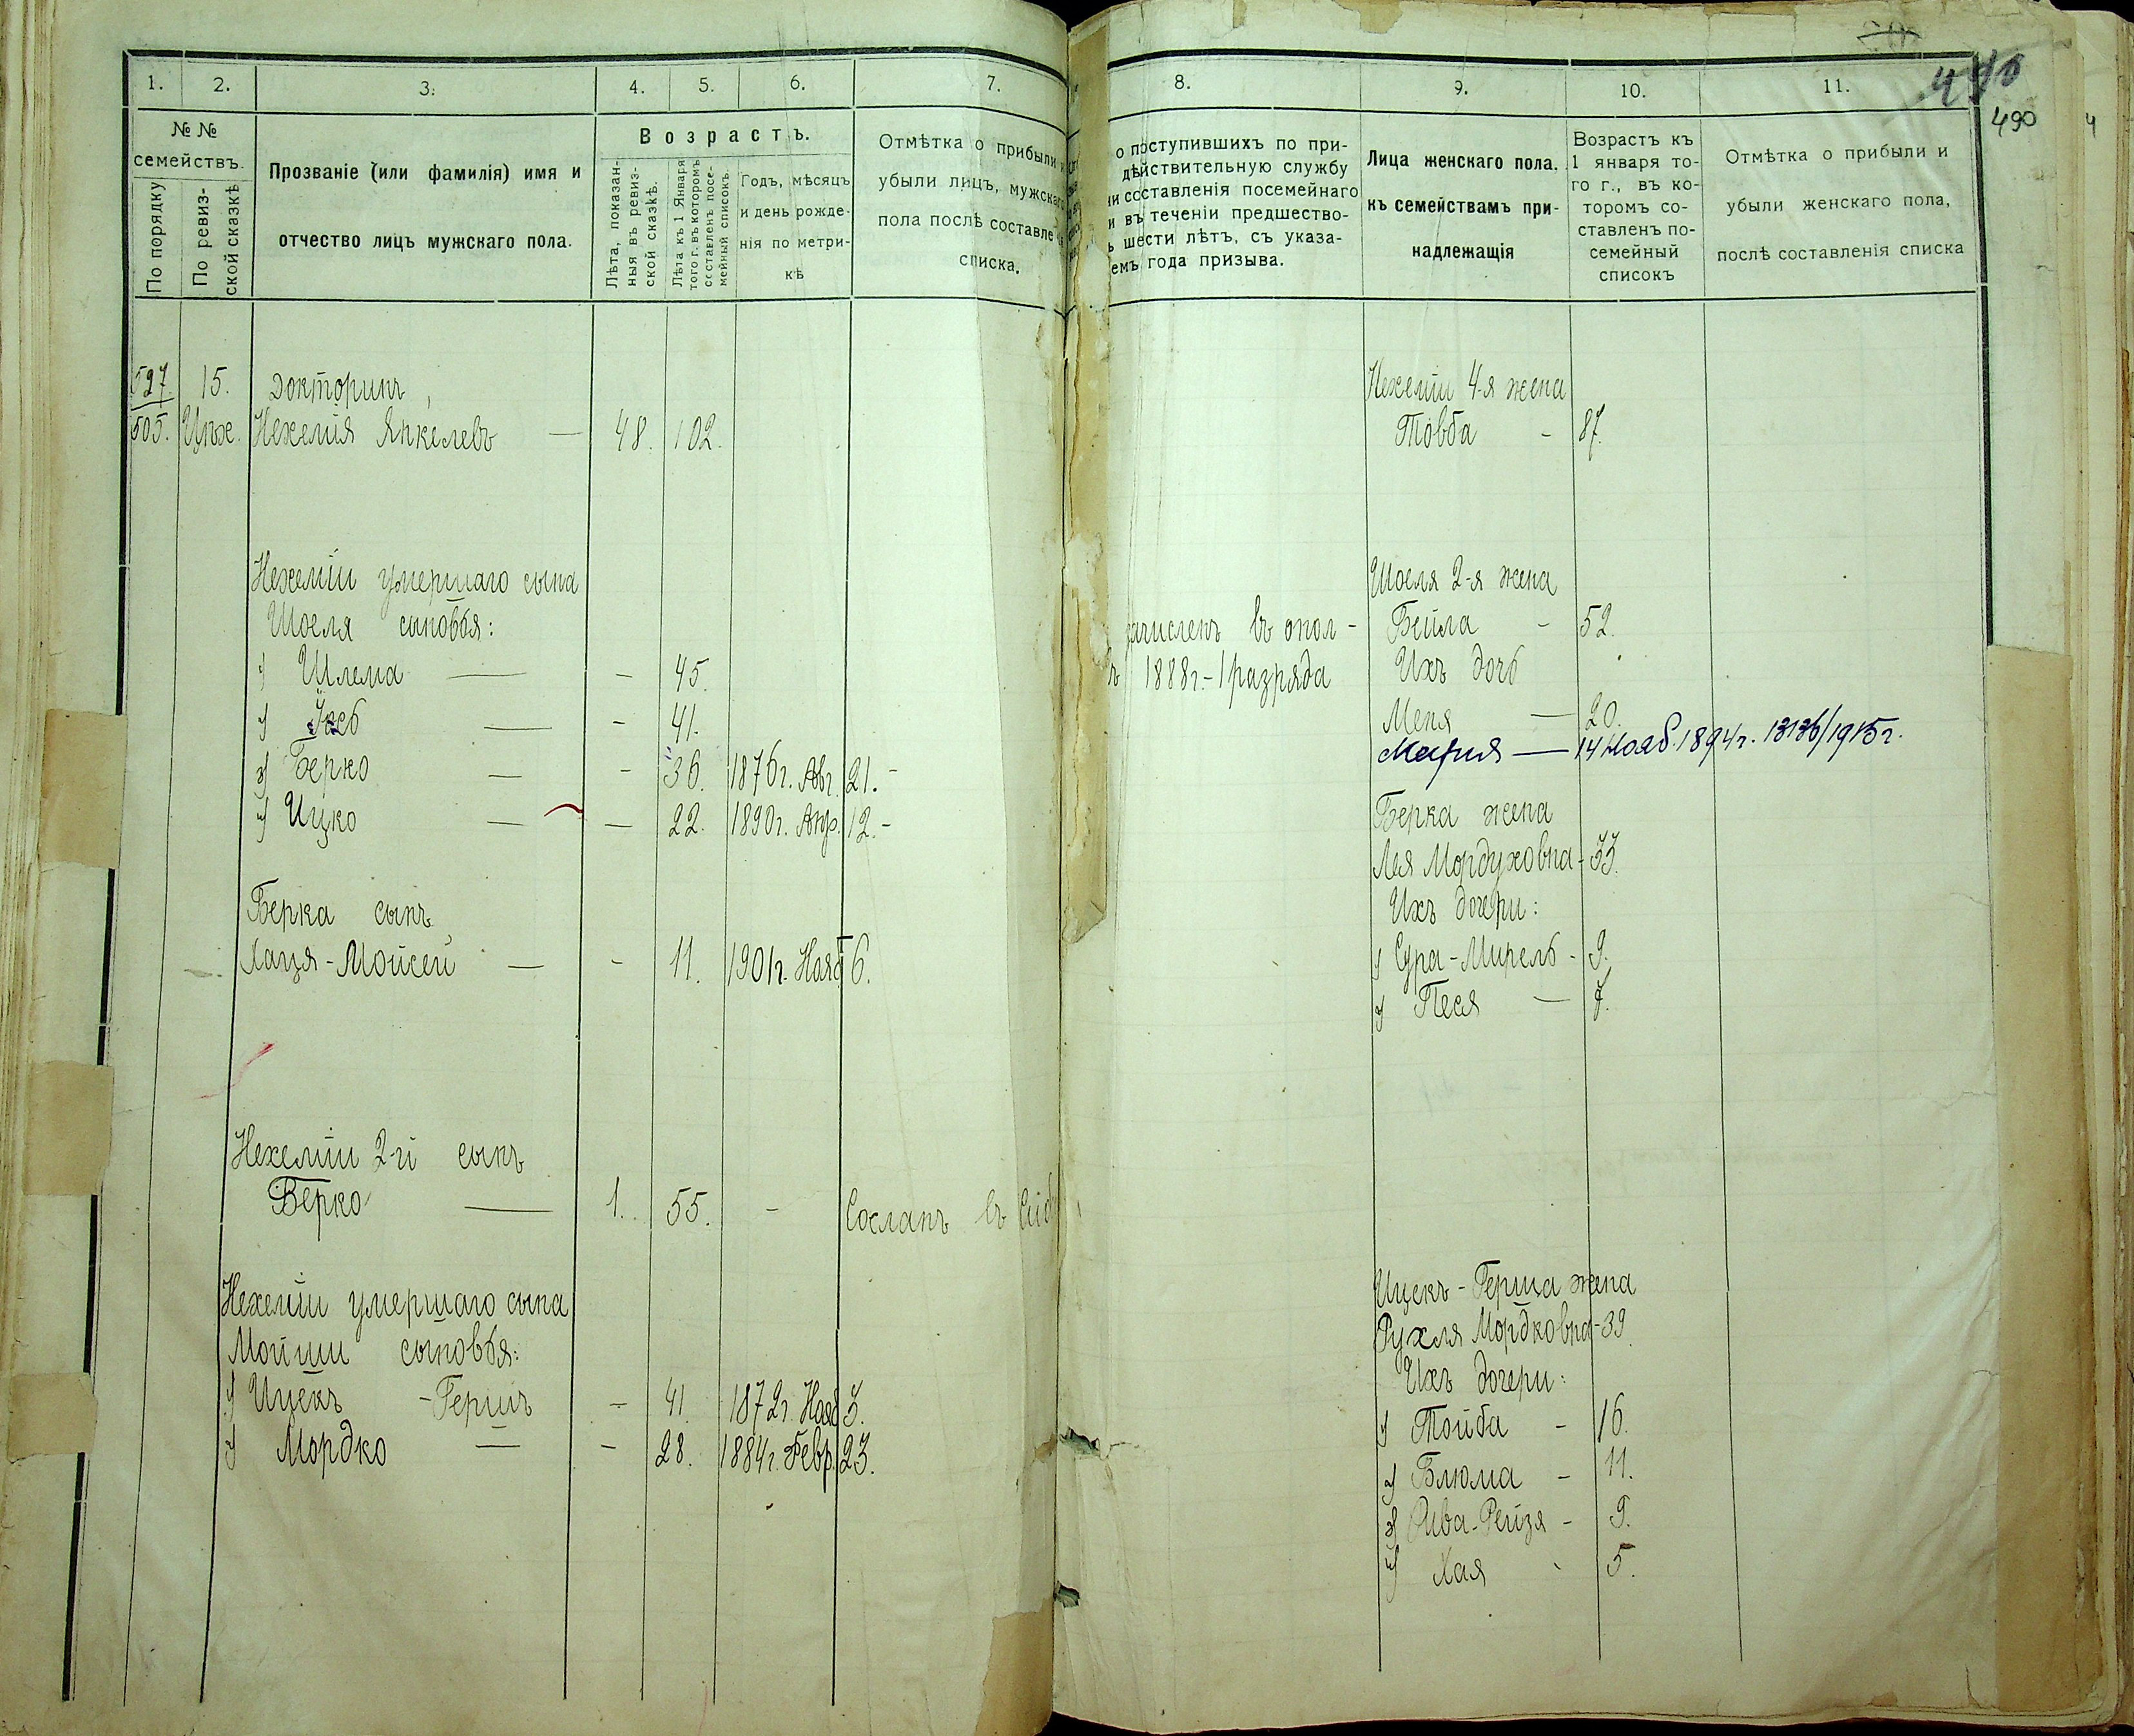 490
490
4
1.
2.
3.
4.
5.
6.
7.
№ №
семействъ.
По порядку
По ревиз-
ской сказкѣ
Прозваніе (или фамилія) имя и
отчество лицъ мужскаго пола.
Возрастъ.
Лѣта, показан-
ныя въ ревиз-
ской сказкѣ.
Лѣта къ 1 Января
того г. въ которомъ
составленъ посе-
мейный списокъ.
Годъ, мѣсяцъ
и день рожде-
нія по метри-
кѣ
Отмѣтка о прибыли и
убыли лицъ, мужскаго
пола послѣ составле
списка.
527. 15. Докторинъ
505. Цех. Нехемія Янкелевъ — 48. 102.
Нехеміи умершаго сына
Шоеля сыновья:
1) Шлема — - 45.
2) — - 41.
3) Берко — - 36. 1876г. Авг. 21. -
4) Ицко — - 22. 1890г. Апр. 12. -
Берка сынъ
Хаця-Мойсей — - 11. 1901г. Нояб. 6.
Нехеміи 2-й сынъ
Берко — 1. 55. - Сосланъ въ Сиб
Нехеміи умершаго сына
Мойши сыновья:
1) Ицекъ-Гершъ - 41. 1872г. Нояб 3.
2) Мордко — - 28. 1884г. Февр. 23.
8.
9.
10.
11.
о поступившихъ по при-
дѣйствительную службу
и составленія посемейнаго
и въ теченіи предшество-
ь шести лѣтъ, съ указа-
емъ года призыва.
Лица женскаго пола,
къ семействамъ при-
надлежащія
Возрастъ къ
1 января то-
го г., въ ко-
торомъ со-
ставленъ по-
семейный
списокъ
Отмѣтка о прибыли и
убыли женскаго пола,
послѣ составленія списка
Нехеміи 4-я жена
Товба - 87.
Шоеля 2-я жена
зачисленъ въ опол- Бейла - 52.
ъ 1888г.-1 разряда Ихъ дочь
Меня — 20.
Мария — 14 Нояб. 1894г. 13136/1915г.
Берка жена
Лея Мордуховна - 33.
Ихъ дочери:
1) Сура-Мирель - 9.
2) Песя — 7.
Ицекъ-Герша жена
Рухля Мордковна - 39.
Ихъ дочери:
1) Тойба - 16.
2) Блюма - 11.
3) Рива-Рейзя - 9.
4) Хая - 5.